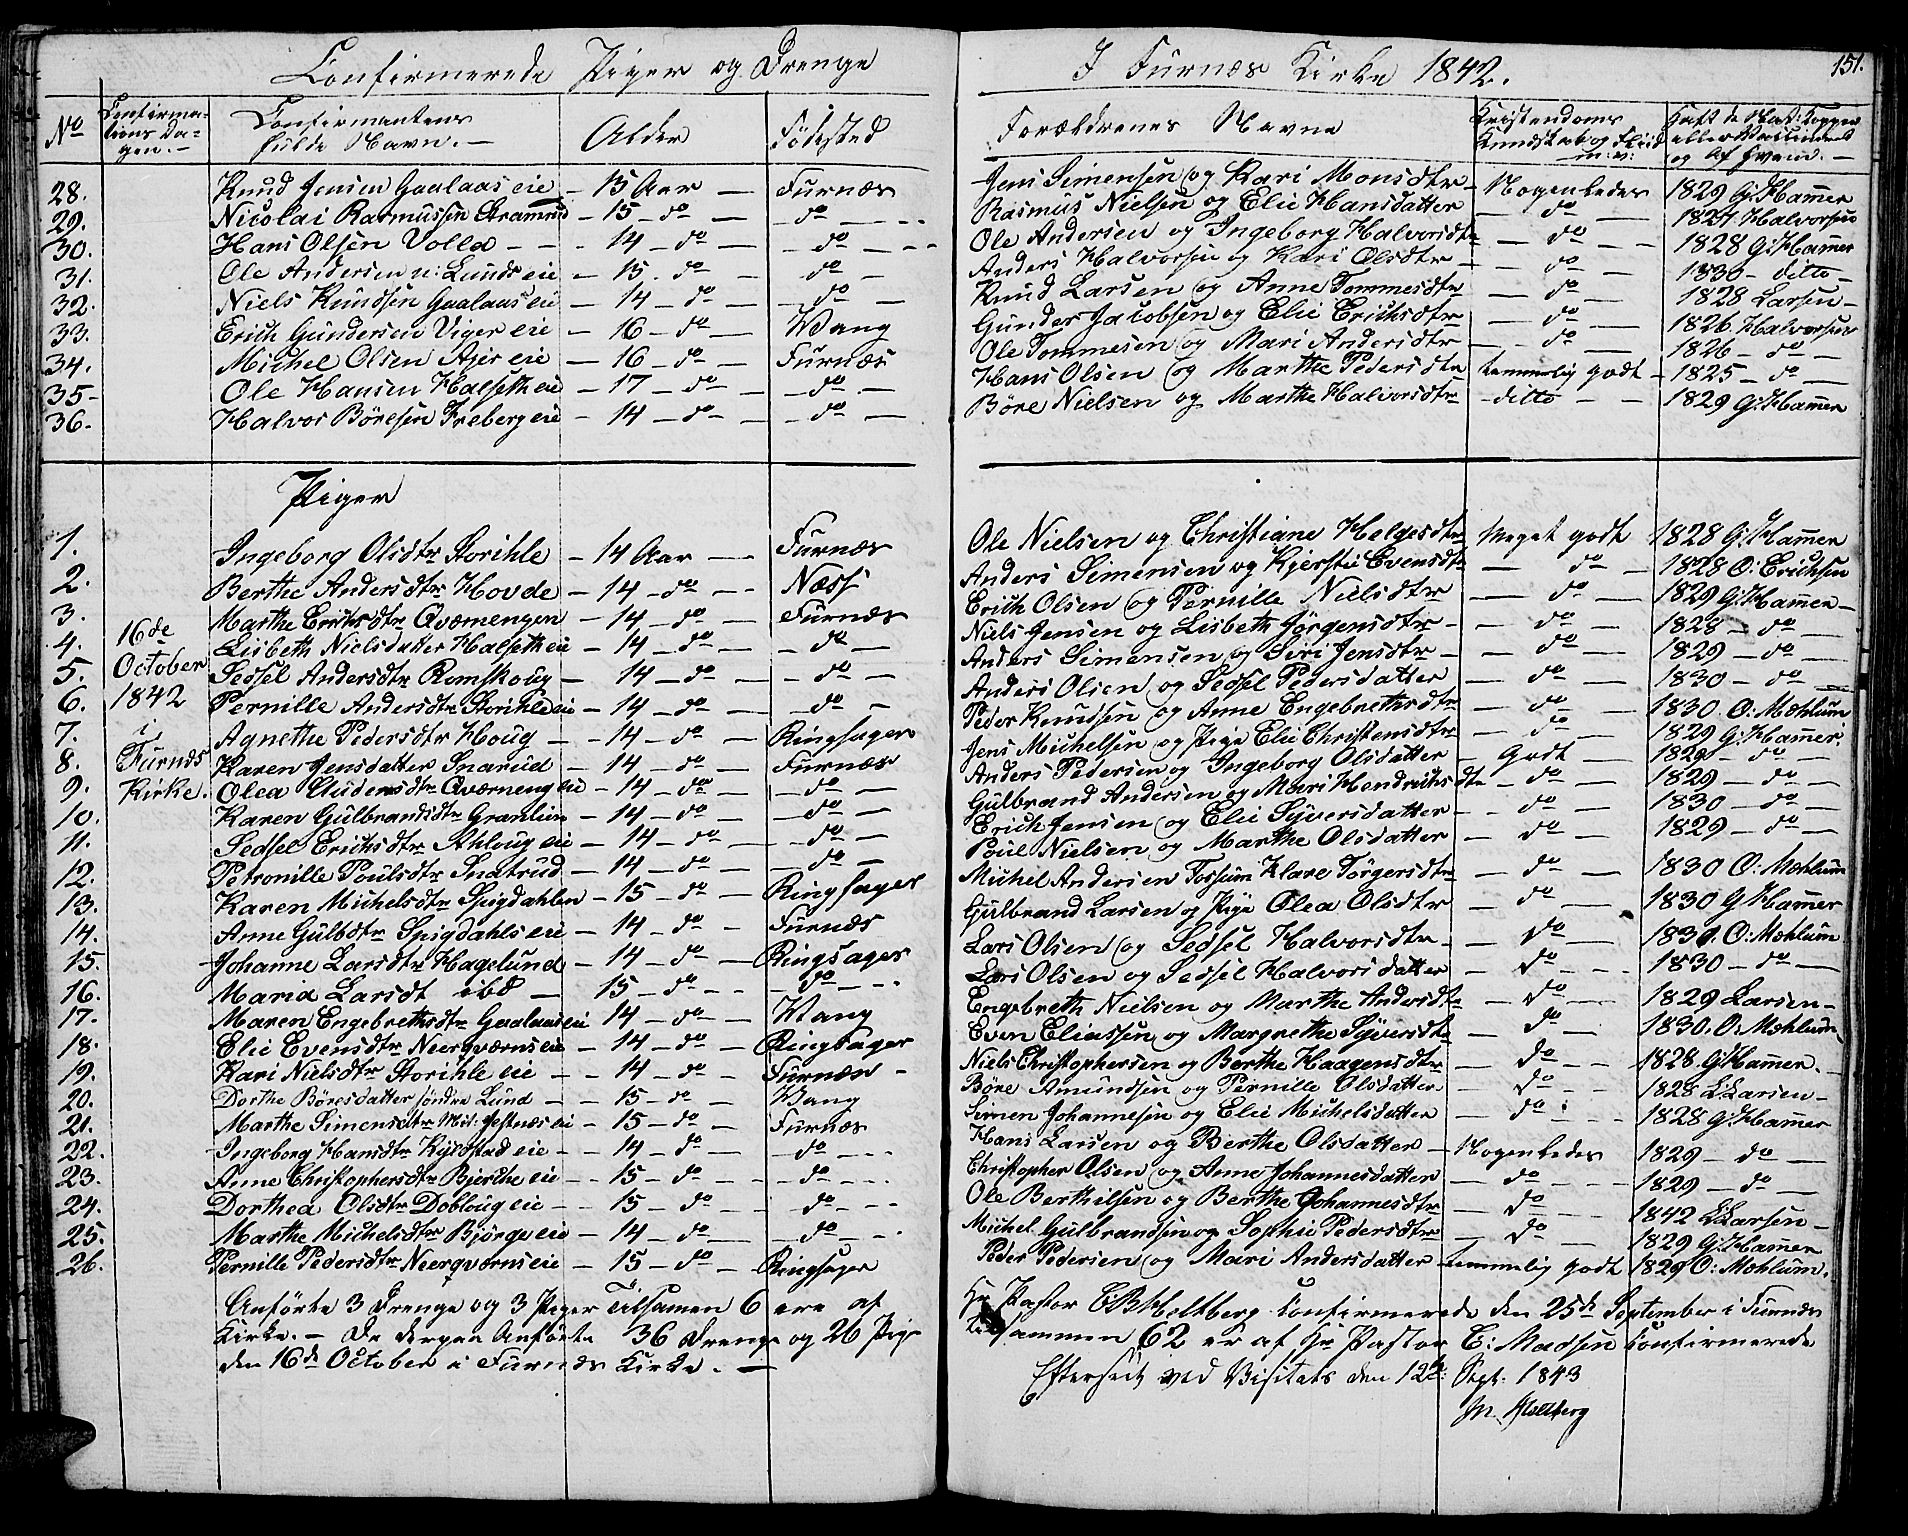 Confirmerede Piger og Drenge I Furnæs Kirke 1842. 151.
No Confirma-tions Da-gen.- Confirmantens fulde Navn.- Alder Fødested Forældrenes Navne Kristendoms Kundskab og Fliid m: v: eller og Af Hvem.-
28. Knud Jensen Gaalaas eie - 15 Aar - Furnæs Jens Simensen og Kari Monsdtr - Nogenledes 1829 G: Hammer
29. Nicolai Rasmussen - 15 - do - - do - Rasmus Nielsen og Elie Hansdatter - do - 1827 Halvorsen
30. Hans Olsen Volla - - 14 - do - - do - Ole Andersen og Ingeborg Halvorsdtr - do - 1828 G: Hammer
31. Ole Andersen n: Lunds eie - 15 - do - - do - Anders Halvorsen og Kari Olsdtr - - do - 1830 - ditto -
32. Niels Knudsen Gaalaas eie - 14 - do - - do - Knud Larsen og Anne Tommesdtr - do - 1828 Larsen -
33. Erich Gundersen Viger eie - 16 - do - Wang Gunder Jacobsen og Elie Erichsdtr - do - 1826 Halvorsen
34. Michel Olsen Ajer eie - 16 - do - Furnæs Ole Tommesen og Mari Andersdtr - do - 1826 - do -
35 - Ole Hansen Halseth eie - 17 - do - - do - Hans Olsen og Marthe Pedersdtr temmelig godt - 1825 - do -
36. Halvor Børesen Freberg eie - 14 - do - - do - Børe Nielsen og Marthe Halvorsdtr - ditto - - 1829 G: Hammer
Piger
1. Ingeborg Olsdtr Storihle - 14 Aar - Furnæs Ole Nielsen og Christiane Helgesdtr Meget godt 1828 G: Hammer
2. Berthe Andersdtr Hovde - 14 - do - - Næss Anders Simensen og Kjersti Evensdtr - do - 1828 O: Erichsen
3. Marthe Erichsdtr Qvæmengen - 14 - do - Furnæs Erich Olsen og Pernille Nielsdtr - do - 1829 G: Hammer -
4. 16de Lisbeth Nielsdatter Halseth eie - 14 - do - - do - Niels Jensen og Lisbeth Jørgensdtr - - do - 1828 - do -
5. October Sedsel Andersdtr Romskoug - 14 - do - - do - Anders Simensen og Siri Jensdtr - - do - 1829 - do -
6. 1842 Pernille Andersdtr Storihle eie - 14 - do - - do - Anders Olsen og Sedsel Pedersdatter - do - 1830 - do -
7. i Agnethe Pedersdtr Houg - 14 - do - Ringsager Peder Knudsen og Anne Engebrethsdtr - do - 1830. O: Mæhlum
8. Furnæs Karen Jensdatter Snarud - 14 - do - Furnæs Jens Michelsen og Pige Elie Christensdtr - do - 1829 G: Hammer.
9. Kirke. Olea Andersdtr Qværneng eie - 14 - do - - do - Anders Pedersen og Ingeborg Olsdatter - Godt - 1829 - do -
10. Karen Gulbrandsdtr Granlien - 14 - do - - do - Gulbrand Andersen og Mari Hendrichsdtr - do - 1829 - do -
11. Sedsel Erichsdtr Ahloug eie - 14 - do - - do - Erich Jensen og Elie Syversdatter - do - 1830 - do -
12. Petronille Poulsdtr Snatrud - 14 - do - - do - Poul Nielsen og Marthe Olsdatter - do - 1829 - do -
13. Karen Michelsdtr Spigdahlen - 15 - do - Ringsager Michel Andersen Fossum Klare Torgersdtr - do - 1830 O: Mæhlum
14. Anne Gulbdtr Spigdahls eie - 14 - do - Furnæs Gulbrand Larsen og Pige Olea Olsdtr - do - 1830 G Hammer
15. Johanne Larsdtr Hagelund - 14 - do - Ringsager Lars Olsen og Sedsel Halvorsdtr - - do - 1830. O: Mæhlum
16. Maria Larsdt ibd - 15 - do - - - do - - Lars Olsen og Sedsel Halvorsdatter - do - - 1830 - do -
17. Maren Engebrethsdtr Gaalaas eie 14 - do - - Wang Engebreth Nielsen og Marthe Andersdtr - do - - 1829 Larsen -
18. Elie Evensdtr Neerqværns eie - 14 - do - Ringsager Even Eliassen og Margrethe Syversdtr - do - 1830. O: Mæhlum
19. Kari Nielsdtr Storihle eie - - 14 - do - Furnæs - Niels Christophersen og Berthe Haagensdtr - do - - 1828. G: Hammer.
20. Dorthe Børesdatter søndre Lund - 15 - do - Wang Børe Amundsen og Pernille Olsdatter - do - - 1828 L: Larsen -
21. Marthe Simensdtr Mel: Jesnes eie - 15 - do - Furnæs Simen Johannesen og Elie Michelsdatter - do - 1828 G: Hammer
22. Ingeborg Hansdtr Kylstad eie - - 14 - do - - do - - - Hans Larsen og Berthe Olsdatter - Nogenledes 1829 - do -
23. Anne Christophersdtr Bjerche eie - - 15 - do - - - do - - - Christopher Olsen og Anne Johannesdatter - do - - - 1829 - do -
24. Dorthea Olsdtr Dobloug eie - - 15 - do - - do - - - Ole Berthilsen og Berthe Johannesdtr - do - - 1842 L: Larsen -
25. Marthe Michelsdtr Bjørge eie - 14 - do - - do - - Michel Gulbrandsen og Sophie Pedersdtr - do - - 1829 G: Hammer
26. Pernille Pedersdtr Neerqværns eie - 15 - do - Ringsager Peder Pedersen og Mari Andersdatter - temmelig godt 1829 O: Mæhlum.
Anførte 3 Drenge og 3 Piger Tilsamen 6 ere af Hr Pastor Holtberg Confirmerede den 25de September i Furnæs
Kirke. - De derpaa Anførte 36 Drenge og 26 Pige Tilsammen 62 er af Hr Pastor C: Madsen Confirmerede
den 16de October i Furnæs Kirke. -
Efterseet ved Visitats den 12te Sept. 1843